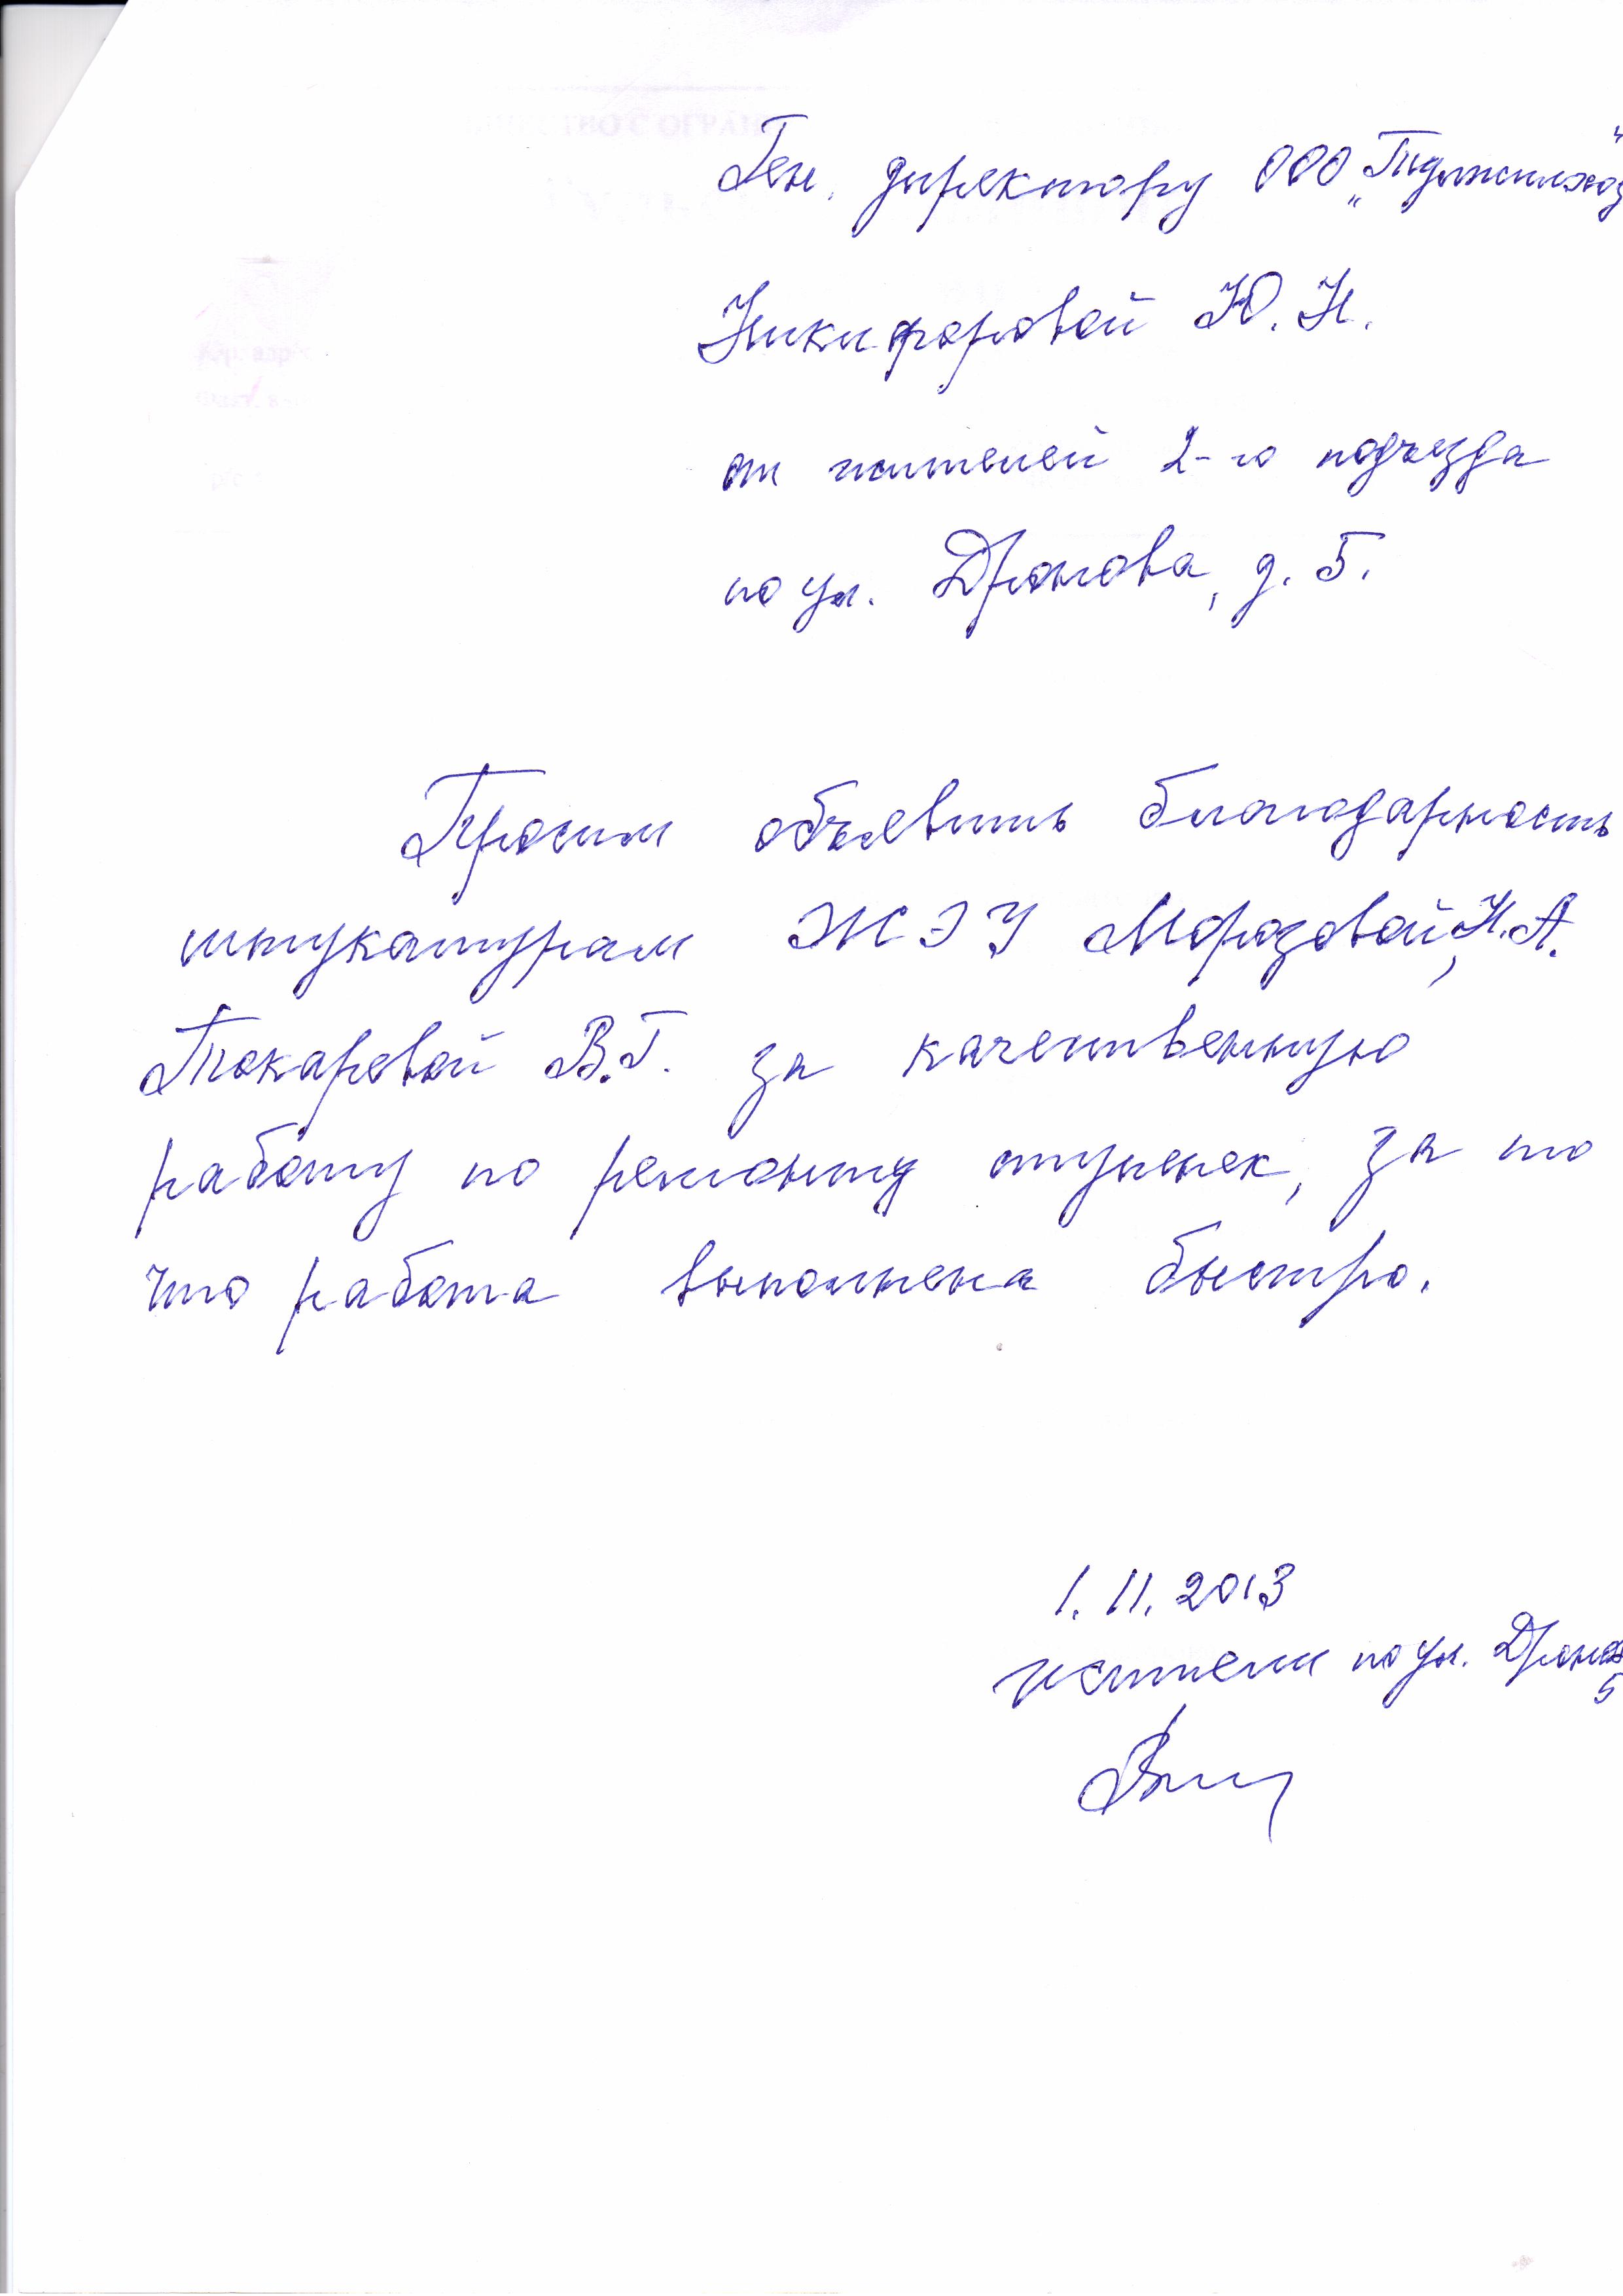 Ген. директору ООО
Никифоровой Ю. Н.
от жителей 2-го подъезда
по ул. Дронова, д. 5.
Просим объявить благодарность
штукатурам ЖЭУ Морозовой Н.А.,
Токаревой В.Г. за качественную
работу по ремонту ступенек, за то
что работа выполнена быстро.
1.11.2013
жители по ул. Дронова
5